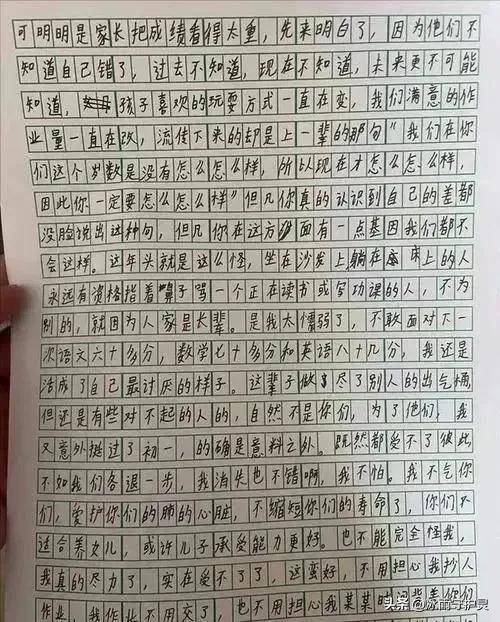 可明明是家长把成绩看得太重，先来明白了，因为他们不
知道自己错了，过去不知道，现在不知道，未来更不可能
知道，孩子喜欢的玩耍方式一直在变，我们满意的作
业量一直在改，流传下来的却是上一辈的那句“我们在你
们这个岁数是没有怎么怎么样，所以现在才怎么怎么样，
因此你一定要怎么怎么样”但凡你真的认识到自己的差都
没脸说出这种句，但凡你在这方面有一点基因我们都不
会这样。这年头就是这么怪，坐在沙发上躺在床上的人
永远有资格指着鼻子骂一个正在读书或写功课的人，不为
别的，就因为人家是长辈。是我太懦弱了，不敢面对下一
次语文六十多分 数学七十多分和英语八十几分，我还是
活成了自己最讨厌的样子。这辈子做尽了别人的出气桶，
但还是有些对不起的人的，自然不是你们，为了他们，我
又意外挺过了初一，的确是意料之外。既然都受不了彼此
不如我们各退一步，我消失也不错啊，我不怕。我不气你
们，爱护你们的肺的心脏，不缩短你们的寿命了，你们不
适合养女儿，或许儿子承受能力更好。也不能完全怪我，
我真的尽力了，实在受不了了，这蛮好，不用担心我抄人
作业，我作业不用交了，也不用担心我某某时间背着你们
头条 @冰前守护灵